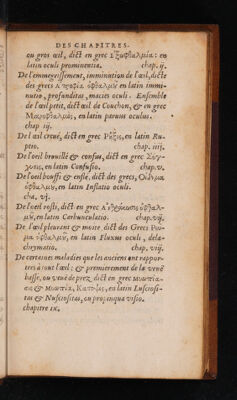 DES CHAPITRES.
ou gros œil, dict en grec Εξοφθαλμία: en
latin oculi prominentia. chap. ij.
De l'emmegrissement, imminution de l'œil, dicte
des grecs Ατροφία οφθαλμȣ͂ en latin immi-
nutio, profunditas, macies oculi. Ensemble
de l'œil petit, dict œil de Couchon, & en grec
en latin paruus oculus.
chap iij.
De l'œil creué, dict en grec Ρῆξις, en latin Ru-
ptio. chap. iiij.
De l'oeil brouillé & confus, dict en grec Σύγ-
χυσις, en latin Confusio. chap. v.
De l'oeil bouffi & enflé, dict des grecs, Οίδημα
οφθαλμȣ͂, en latin Inflatio oculi.
cha. vj.
De l'oeil rosti, dict en grec Ανθράκωσις οφθαλ-
μȣ͂, en latin Carbunculatio. chap. vij.
De l'œil pleurant & moite dict des Grecs Ρευ-
μα οφθαλμȣ͂, en latin Fluxus oculi, dela-
chrymatio. chap. viij.
De certaines maladies que les anciens ont rappor-
trées à tout l'œil: & premierement de la veuë
basse, ou veuë de prez, dict en grec Μυωπία-
σις & Μυωπία, en latin Lusciosi-
tas & Nusciositas, ou propinqua visio.
chapitre ix.